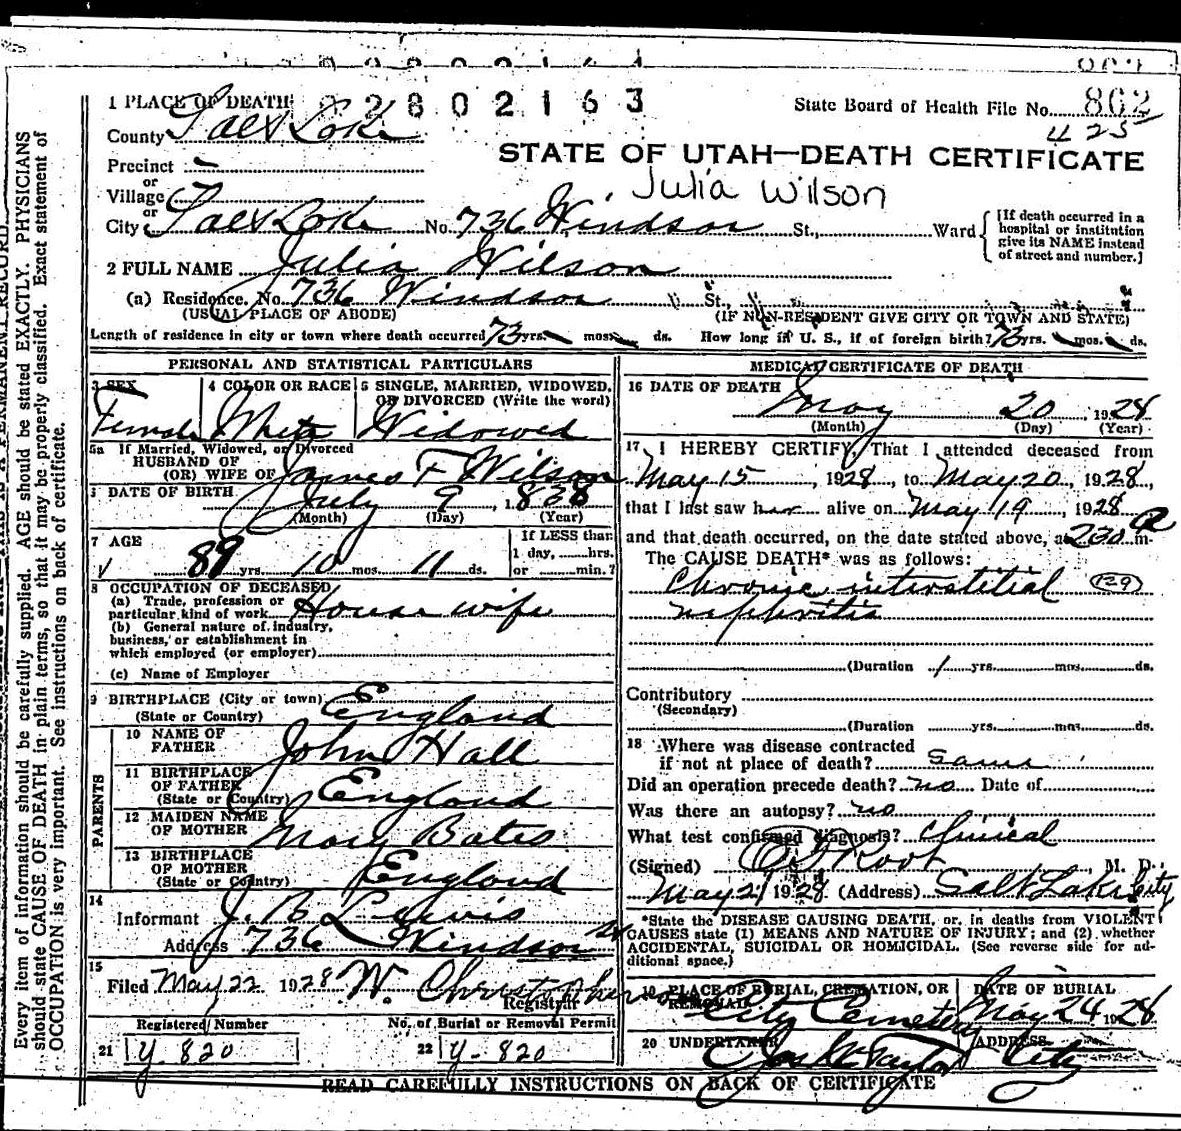 2802163
1 PLACE OF DEATH
State Board of Health File No. 862
County Salt Lake
U 25
Precinct —
STATE OF UTAH—DEATH CERTIFICATE
or
Village
Julia Wilson
or
City Salt Lake No. 736 Windsor St., Ward
[If death occurred in a hospital or institution give its NAME instead of street and number.]
2 FULL NAME Julia Wilson
(a) Residence. No. 736 Windsor St.,
(USUAL PLACE OF ABODE) (IF NON-RESIDENT GIVE CITY OR TOWN AND STATE)
Length of residence in city or town where death occurred 73 yrs. — mos. — ds. How long in U. S., if of foreign birth? 73 yrs. — mos. — ds.
PERSONAL AND STATISTICAL PARTICULARS
3 SEX Female
4 COLOR OR RACE White
5 SINGLE, MARRIED, WIDOWED, OR DIVORCED (Write the word) Widowed
5a If Married, Widowed, or Divorced
HUSBAND OF
(OR) WIFE OF James F Wilson
6 DATE OF BIRTH July 9, 1838
(Month) (Day) (Year)
7 AGE
89 yrs. 10 mos. 11 ds.
If LESS than
1 day, ......hrs.
or ......min.?
8 OCCUPATION OF DECEASED
(a) Trade, profession or
particular kind of work House wife
(b) General nature of industry,
business, or establishment in
which employed (or employer)
(c) Name of Employer
9 BIRTHPLACE (City or town)
(State or Country) England
PARENTS
10 NAME OF
FATHER John Hall
11 BIRTHPLACE
OF FATHER
(State or Country) England
12 MAIDEN NAME
OF MOTHER Mary Bates
13 BIRTHPLACE
OF MOTHER
(State or Country) England
14
Informant J. B Lewis
Address 736 Windsor St
15
Filed May 22 1928 W. Christopherson
Registrar
Registered Number
No. of Burial or Removal Permit
21 Y-820
22 Y-820
MEDICAL CERTIFICATE OF DEATH
16 DATE OF DEATH
May 20 1928
(Month) (Day) (Year)
17 I HEREBY CERTIFY, That I attended deceased from
May 15, 1928, to May 20, 1928,
that I last saw her alive on May 19, 1928
and that death occurred, on the date stated above, at 230 a m.
The CAUSE DEATH* was as follows:
Chronic interstitial (129)
nephritis
(Duration 1 yrs. mos. ds.
Contributory
(Secondary)
(Duration yrs. mos. ds.
18 Where was disease contracted
if not at place of death? Same
Did an operation precede death? no Date of
Was there an autopsy? no
What test confirmed diagnosis? Clinical
(Signed) Root, M. D.
May 21 1928 (Address) Salt Lake City
*State the DISEASE CAUSING DEATH, or, in deaths from VIOLENT
CAUSES state (1) MEANS AND NATURE OF INJURY; and (2) whether
ACCIDENTAL, SUICIDAL OR HOMICIDAL. (See reverse side for ad-
ditional space.)
19 PLACE OF BURIAL, CREMATION, OR
REMOVAL City Cemetery
DATE OF BURIAL
May 24 1928
20 UNDERTAKER Taylor
ADDRESS City
READ CAREFULLY INSTRUCTIONS ON BACK OF CERTIFICATE
Every item of information should be carefully supplied. AGE should be stated EXACTLY. PHYSICIANS
should state CAUSE OF DEATH in plain terms, so that it may be properly classified. Exact statement of
OCCUPATION is very important. See instructions on back of certificate.